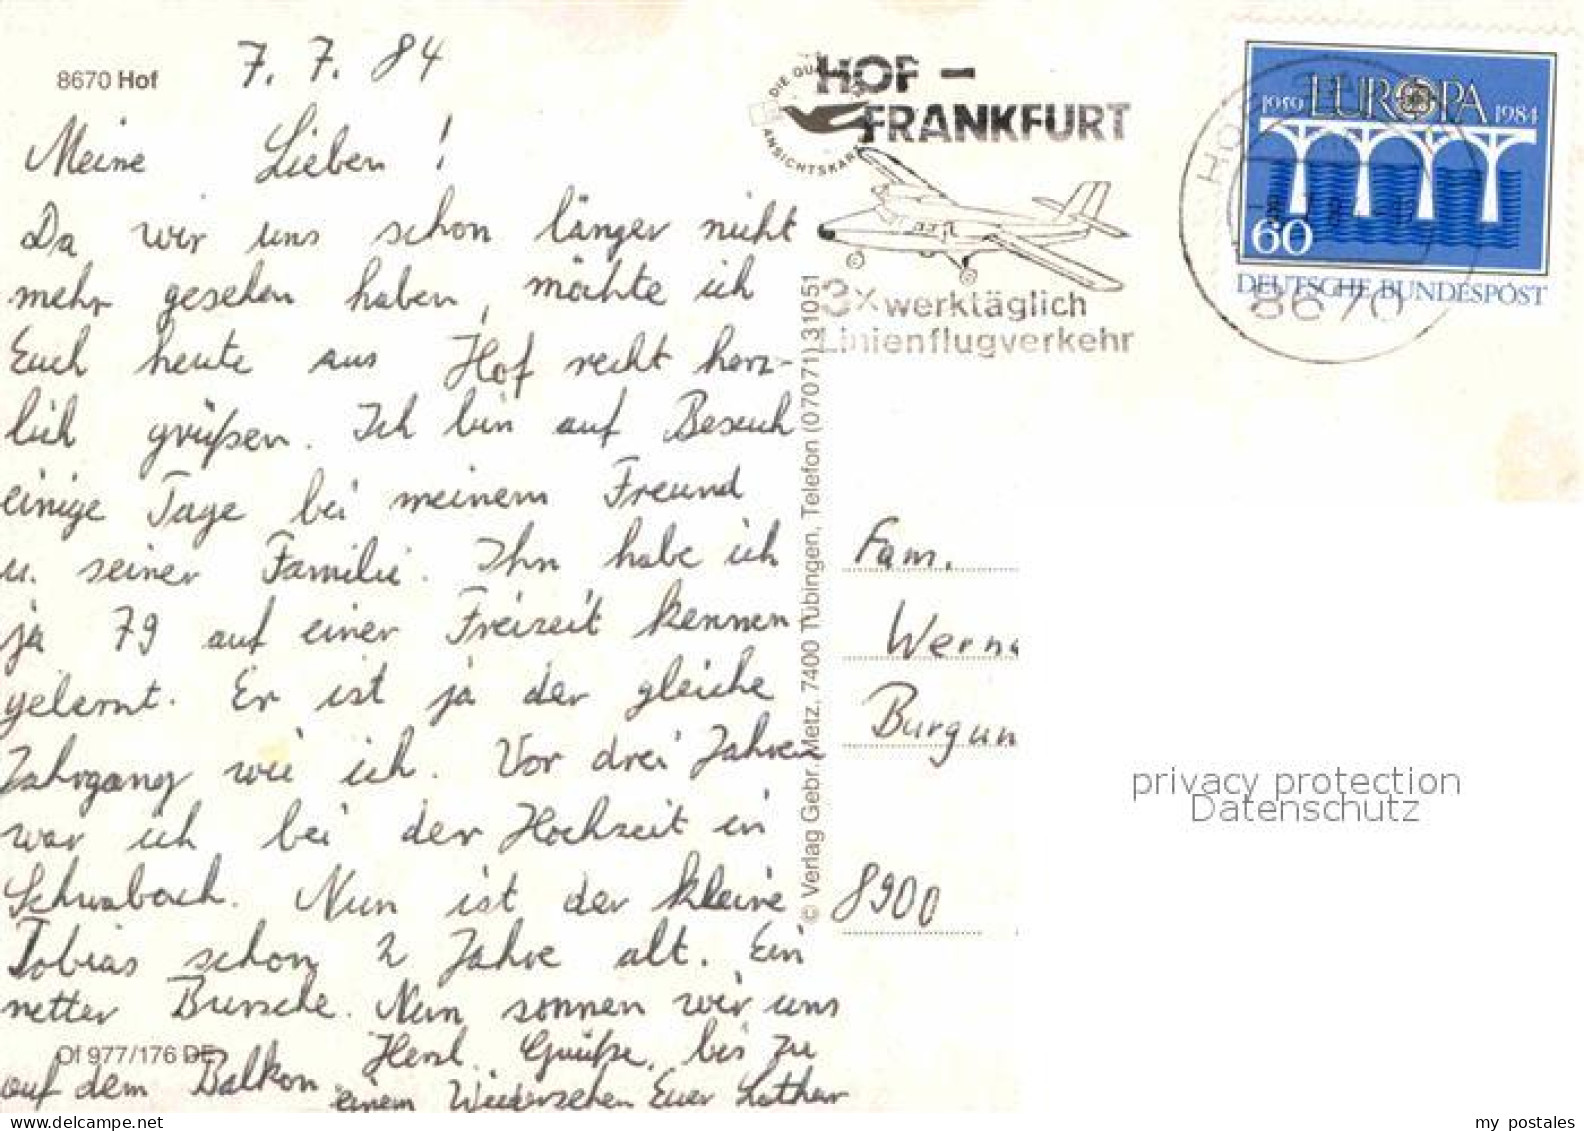 8670 Hof
7. 7. 84
Meine Lieben!
Da wir uns schon länger nicht
mehr gesehen haben, möchte ich
Euch heute aus Hof recht herz-
lich grüßen. Ich bin auf Besuch
einige Tage bei meinem Freund
u. seiner Familie. Ihn habe ich
ja 79 auf einer Freizeit kennen
gelernt. Er ist ja der gleiche
Jahrgang wie ich. Vor drei Jahren
war ich bei der Hochzeit in
Schwabach. Nun ist der kleine
Tobias schon 2 Jahre alt. Ein
netter Bursche. Nun sonnen wir uns
auf dem Balkon.
Herzl. Grüße, bis zu
einem Wiedersehen Euer Lothar
Of 977/176 DE
© Verlag Gebr. Metz, 7400 Tübingen, Telefon (07071) 31051
DIE QUA
ANSICHTSKAR
HOF -
FRANKFURT
3x werktäglich
Linienflugverkehr
HOF
8670
1959 EUROPA 1984
60
DEUTSCHE BUNDESPOST
Fam.
Werne
Burgun
8900
privacy protection
Datenschutz
my postales